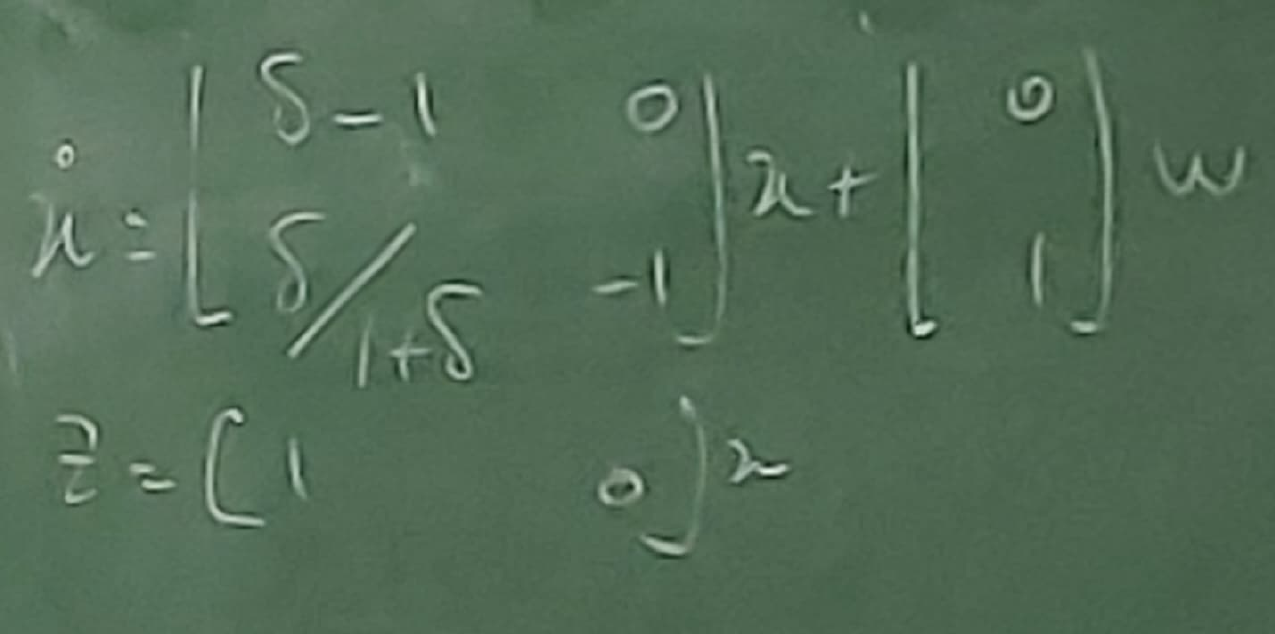 ẋ = [ δ-1 0 ; δ/1+δ -1 ] x + [ 0 ; 1 ] w
z = [ 1 0 ] x